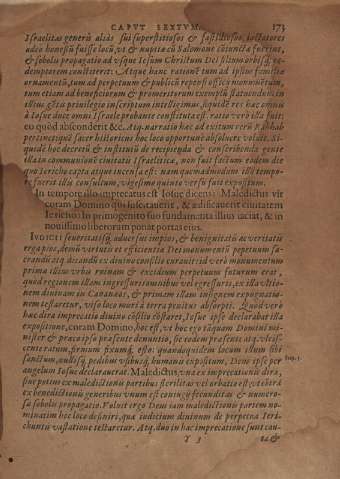 CAPVT SEXTVM. 173
Israelitas generis alias sui superstitiosos & fastidiosos, loctatores
adeo honestũ fuisse locũ, vt & nuptiæ cũ Salomone cõtinctã fuerint,
& sobolis propagatio ad vsque Iesum Christum Dei filium orbisq́; re-
demptorem constiterit. Atque hanc rationẽ tum ad ipsius familiæ
ornamentũ, tum ad perpetuum & publicũ reipub. officii monumentum,
tum etiam ad beneficiorum & promeritorum exemplũ statuendum in
illius gẽta priuilegio inscriptum intelligimus, siquidẽ res hæc omnis
à Iosue duce omni Israele probante constituta est. ratio verò illa fuit:
eo quòd absconderit &c. Atq. narratio hæc ad exitum rerũ
pertinet, quã sacer historicus hoc loco opportunè absoluere voluit. Si-
quidẽ hoc decretũ & institutũ de recipienda & conseribenda gente
illa in communionẽ ciuitatis Israeliticæ, non fuit factum eodem die
quo Iericho capta atque incensa est: nam quemadmodum illa tempo-
re fuerit illis consultum, vigesimo quinto versu fuit expositum.
In tempore illo imprecatus est Iosue dicens: Maledictus vir
coram Domino qui suscitauerit, & ædificauerit ciuitatem
Iericho: In primogenito suo fundamenta illius iaciat, & in
nouissimo liberorum ponat portas eius.
IVDICII seueritatisq́; aduersus impios, & benignitatis ac veritatis
erga pios, demũ virtutis et efficientia Dei monumentũ perpetuum sa-
crandũ atq. dicandũ ex diuino consilio curauit: id verò monumentum
prima illius vrbis ruinam & excidium perpetuum futurum erat,
quod regionem illam ingressuris omnibus vel egressuris, ex illa vltio-
nem diuinam in Cananæos, & primam illam indigenem expugnatio-
nem testaretur, viso loco muri à terra penitus absorpti. Quod verò
hæc dira imprecatio diuino cõsilio cõstaret, Iosue ipse declarabat illa
expositione, coram Domino, hoc est, vt hoc ego tãquam Domini mi-
nister & præco ipso præsente denuntio, sic eodem præsente atq. vlcis-
cente ratum, firmum fixumq́; esto: quandoquidem locum illum ibi
sanctum, nudisq́; pedibus vsibusq́; humanis expositum, Deus ipse per
angelum Iosue declarauerat. Maledictus, vna ex imprecationis dira,
siue potius ex maledictionis partibus sterilitas vel orbatio est, vt ex
ex benedictionis generibus vnum est coniugij fecunditas & numero-
sa sobolis propagatio. Voluit ergo Deus eam maledictionis partem no-
minatim hoc loco definiri, quæ iudicium diuinum de perpetua Ieri-
chuntis vastatione testaretur. Atq. duo in hac imprecatione sunt cau-
Y 3